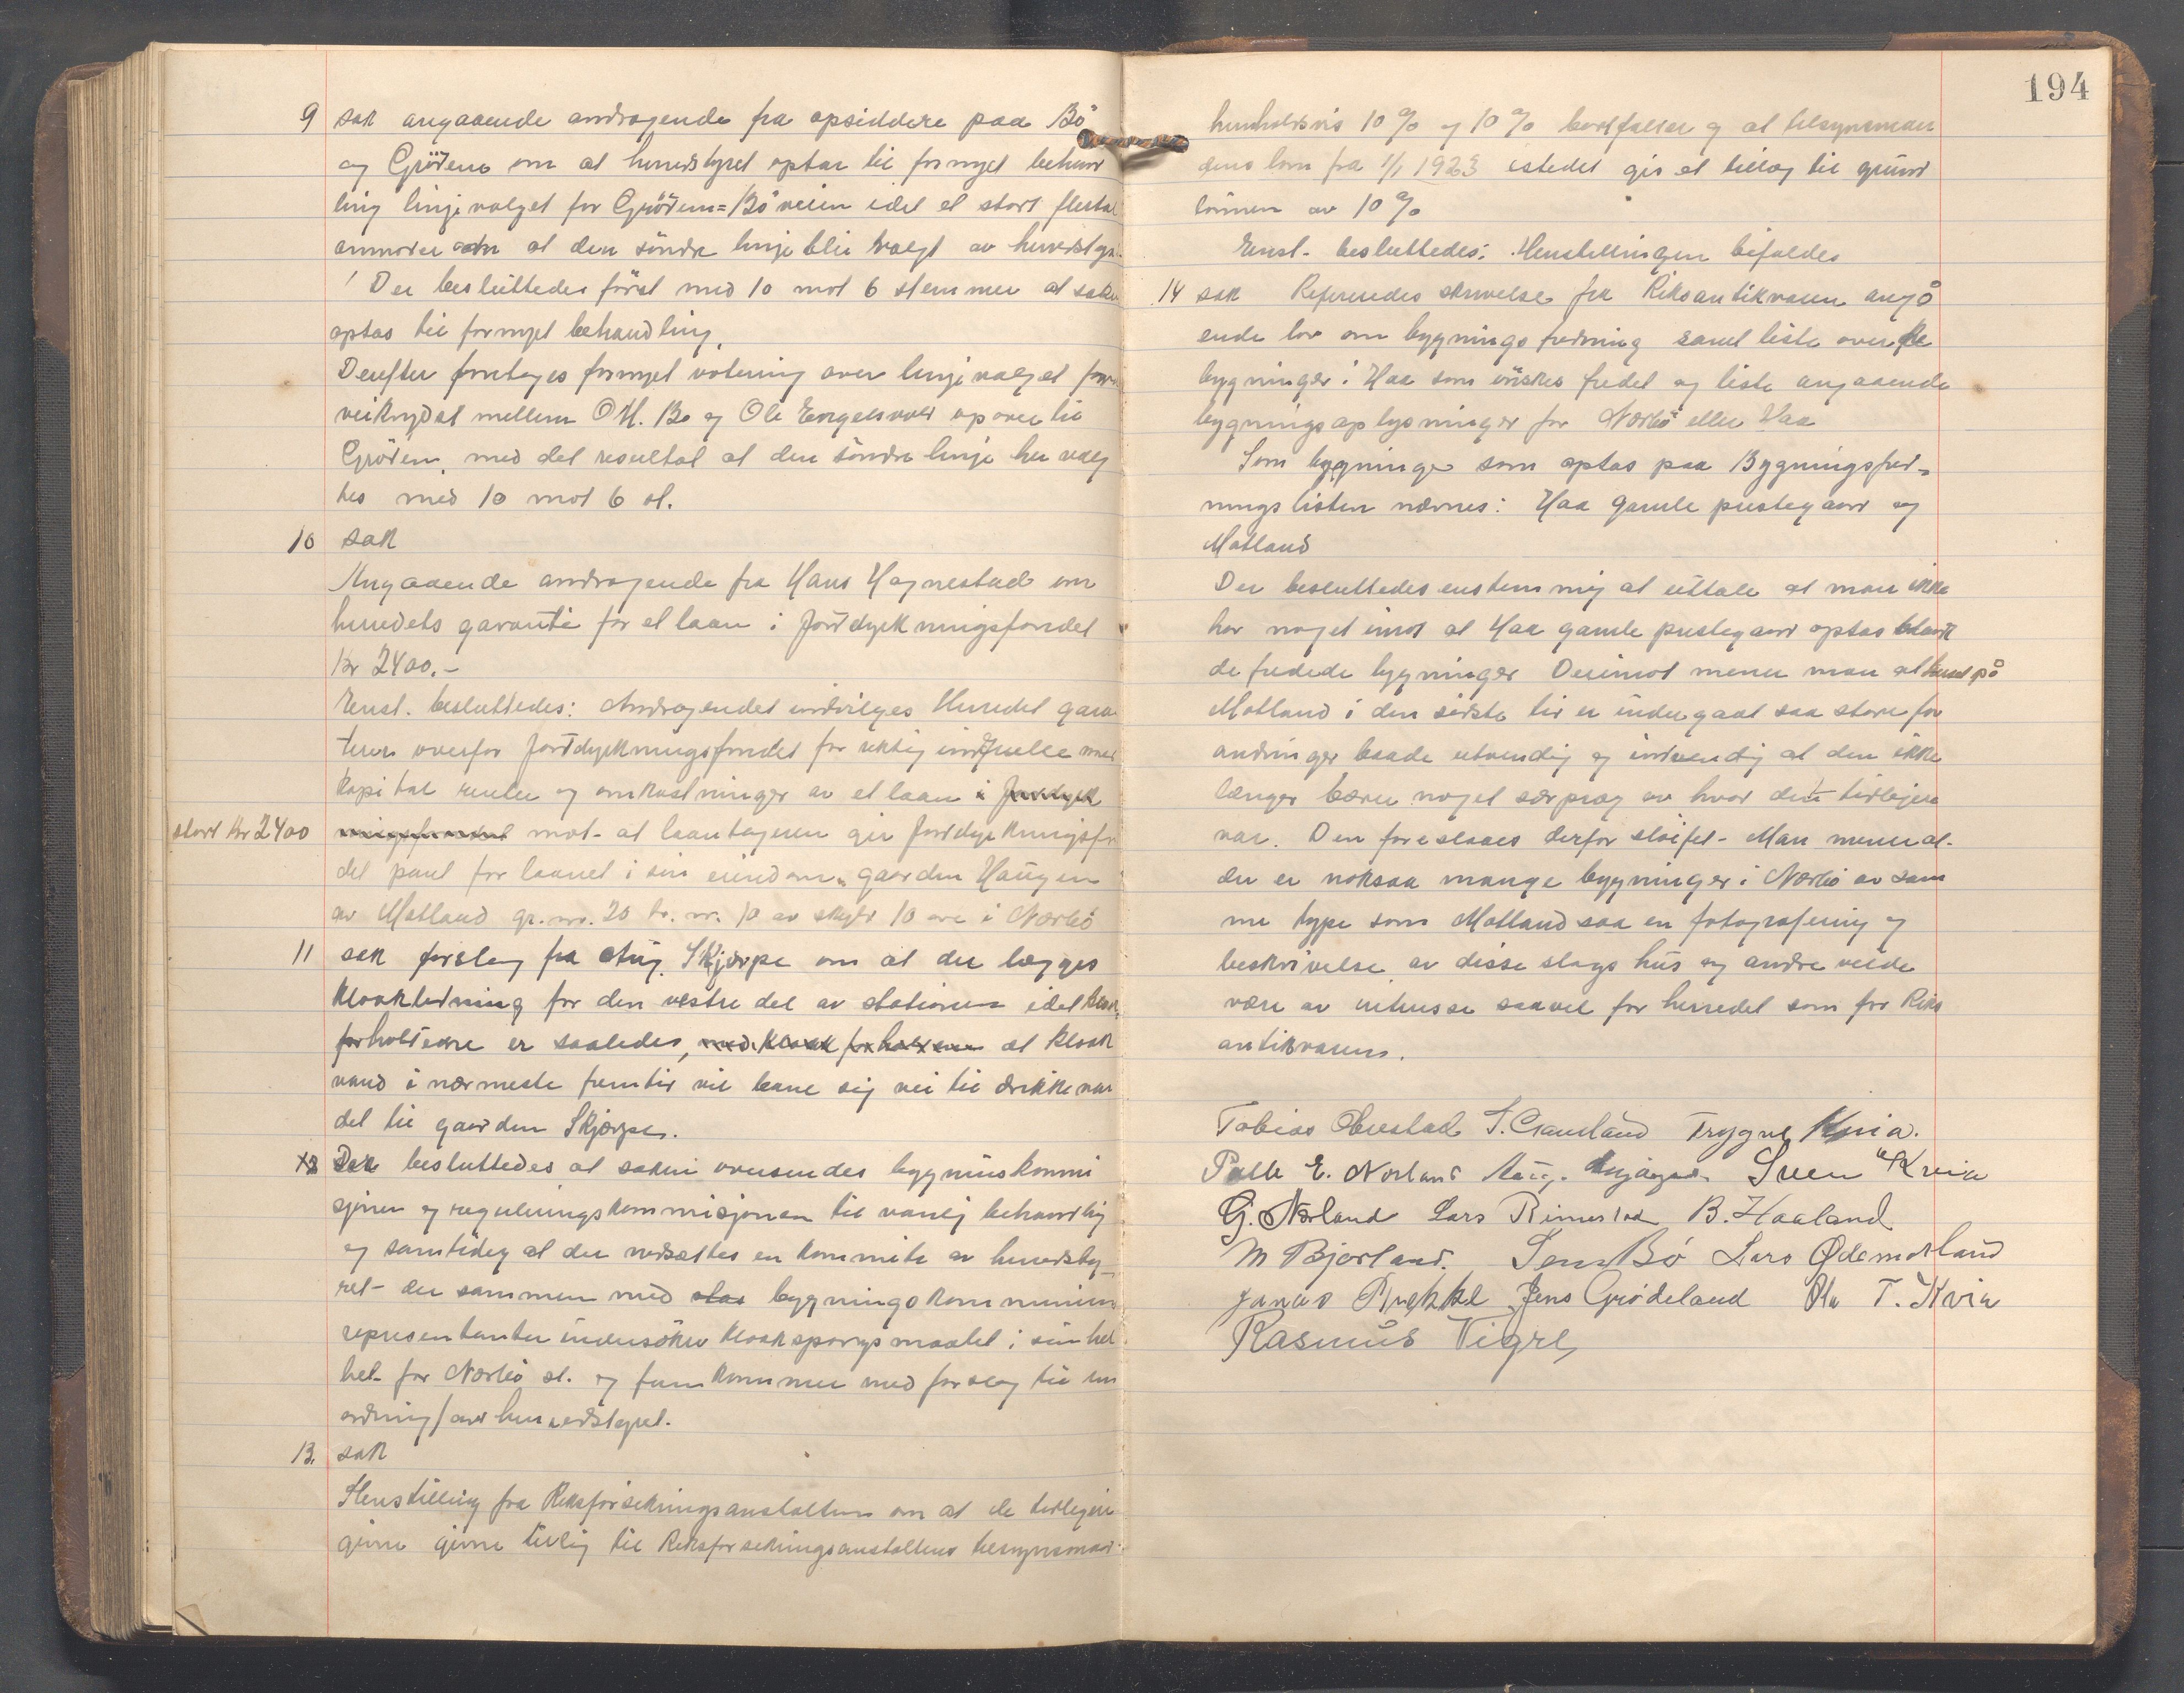 9 sak angaaende andragende fra opsiddere paa Bö
og Grödem om at herredstyret optar til fornyet behand
ling linjevalget for Grödem=Bö veien idet et stort flertal
anmoder om at den söndre linje blir valgt av herredstyr.
Der besluttedes först med 10 mot 6 stemmer at saken
optas til fornyet behandling.
Derefter foretages fornyet votering over linjevalget fra
veikrydset mellem O.H. Bö og Ole Engelsvold opover til
Grödem, med det resultat at den söndre linje her valg
tes med 10 mot 6 st.
10 sak
Angaaende andragende fra Hans Hognestad om
herredets garanti for et laan i Jorddyrkningsfondet
Kr 2400.-
Enst. besluttedes: Andragendet indvilges Herredet gara
terer overfor Jorddyrkningsfondet for riktig indfrielse med
kapital renter og omkostninger av et laan i Jorddyrk
stort Kr 2400 ningsfondet mot- at laantageren gir Jorddyrkningsfo
det pant for laanet i sin eiendom, gaarden Haugen
av Motland gr. nr. 20 br. nr. 10 av skyld 10 öre i Nærbö
11 sak forslag fra Aug. Skjærpe om at der lægges
kloakledning for den vestre del av stationen idet kloak
forholdene er saaledes, med kloak forholdene at kloak
vand i nærmeste fremtid vil bane sig vei til drikkevan
det til gaarden Skjærpe.
12 Der besluttedes at saken oversendes bygningskommi
sjonen og reguleringskommisjonen til vanlig behandling
og samtidig at der nedsættes en kommite av herredsty-
ret- der sammen med bygningskommunens
representanter undersöker kloakspörgsmaalet i sin hel
het for Nærbö st. og fremkommer med forslag til en
ordning for herredstyret.
13. sak
Henstilling fra Riksforsikringsanstalten om at de tidligere
givne tillæg til Riksforsikringsanstaltens tilsynsmænd
194
henholdsvis 10 % og 10 % bortfaller og at tilsynsmæn
dens lönn fra 1/1 1923 istedet gis et tillæg til grund
lönnen av 10 %
Enst. besluttedes: Henstillingen bifaldes
14 sak Refereredes skrivelse fra Riksantikvaren angå
ende lov om bygningsfredning samt liste over de
bygninger i Haa som önskes fredet og liste angaaende
bygningsoplysninger for Nærbö eller Haa
Som bygninger som optas paa Bygningsfred-
ningslisten nævnes: Haa gamle prestegaard og
Motland
Der besluttedes enstemmig at uttale at man ikke
har noget imot at Haa gamle prestegaard optas blandt
de fredede bygninger Derimot mener man at huset på
Motland i den sidste tid er undergaat saa store for
andringer baade utvendig og indvendig at den ikke
længer bærer noget særpræg av hvad den tidligere
var. Den foreslaaes derfor slöifet- Man mener at-
der er noksaa mange bygninger i Nærbö av sam
me type som Motland saa en fotografering og
beskrivelse av disse slags hus og andre vilde
være av interesse saavel for herredet som for Riks
antikvaren.
Tobias Obrestad S. Graueland Trygve Kvia.
Palle E. Norland Aug. Skjærpe Sven Kvia
G. Nærland Lars Rimestad B. Haaland
M Bjorland. Jens Bö Lars Ødemotland
Jonas Brekke Jens Grödeland Ola T. Kvia
Rasmus Vigre